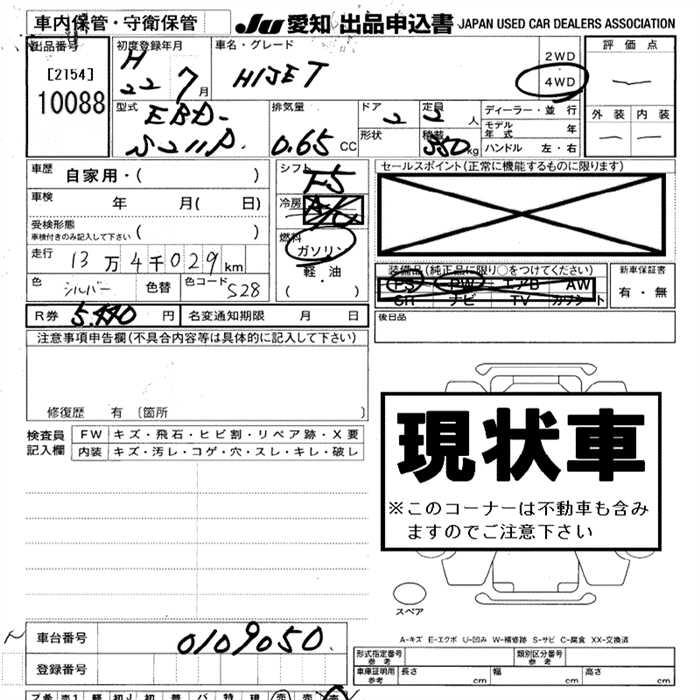 車内保管・守衛保管
JU 愛知 出品申込書 JAPAN USED CAR DEALERS ASSOCIATION
出品番号
[2154]
10088
初度登録年月
H
22 7月
車名・グレード
HIJET
2WD
4WD
評価点
外装 内装
型式
EBD-
S211P
排気量
0.65 CC
ドア
2
形状
定員
2 人
積載
350kg
ディーラー・並行
モデル
年式 年
ハンドル 左・右
車歴 自家用・( )
車検 年 月( 日)
受検形態
車検付きのみ記入して下さい ( )
走行 13万4千029km
色 シルバー 色替 色コード S28
シフト
F5
冷房
A/C
燃料
ガソリン
軽・油
( ・ )
セールスポイント(正常に機能するものに限ります)
装備品(純正品に限り○をつけてください)
PS PW エアB AW
SR ナビ TV カワシート
新車保証書
有・無
R券 5.440円 名変通知期限 月 日
後日品
注意事項申告欄(不具合内容等は具体的に記入して下さい)
修復歴 有 [箇所 ]
検査員
記入欄
FW キズ・飛石・ヒビ割・リペア跡・X要
内装 キズ・汚レ・コゲ・穴・スレ・キレ・破レ
現状車
※このコーナーは不動車も含み
ますのでご注意下さい
スペア
A-キズ E-エクボ U-凹み W-補修跡 S-サビ C-腐食 XX-交換済
車台番号 0109050
登録番号
形式指定番号
参考
類別区分番号
参考
車庫証明用
参考
長さ cm 幅 cm 高さ cm